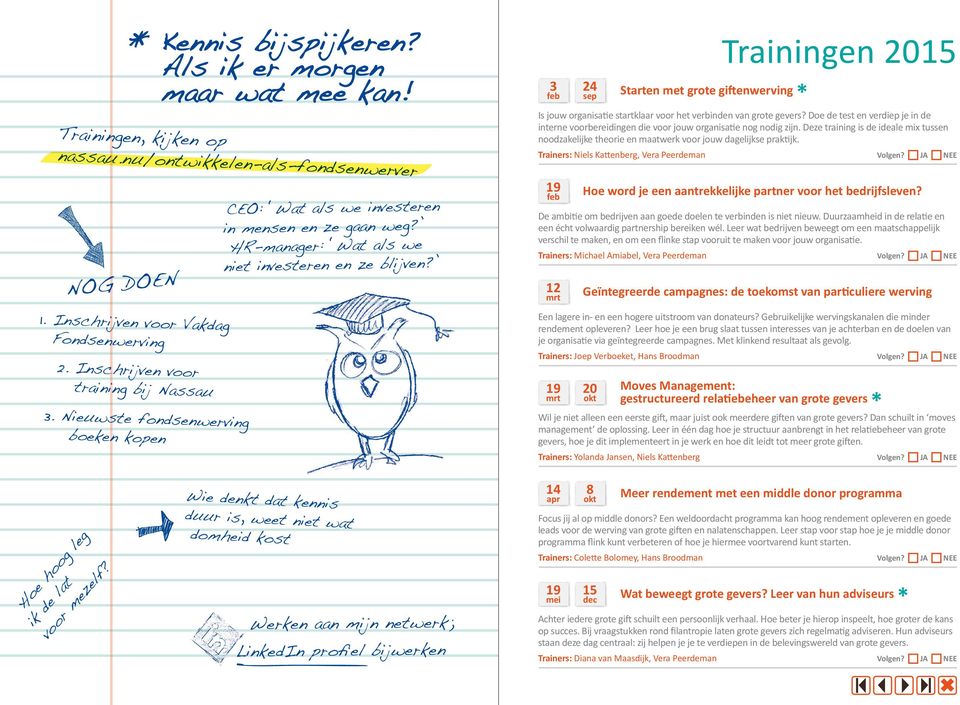 * Kennis bijspijkeren?
Als ik er morgen
maar wat mee kan!
Trainingen, kijken op
nassau.nu/ontwikkelen-als-fondsenwerver
CEO: 'Wat als we investeren
in mensen en ze gaan weg?'
HR-manager: 'Wat als we
niet investeren en ze blijven?'
NOG DOEN
1. Inschrijven voor Vakdag
Fondsenwerving
2. Inschrijven voor
training bij Nassau
3. Nieuwste fondsenwerving
boeken kopen
Wie denkt dat kennis
duur is, weet niet wat
domheid kost
Hoe hoog leg
ik de lat
voor mezelf?
Werken aan mijn netwerk;
LinkedIn profiel bijwerken
Trainingen 2015
3 feb 24 sep Starten met grote giftenwerving *
Is jouw organisatie startklaar voor het verbinden van grote gevers? Doe de test en verdiep je in de
interne voorbereidingen die voor jouw organisatie nog nodig zijn. Deze training is de ideale mix tussen
noodzakelijke theorie en maatwerk voor jouw dagelijkse praktijk.
Trainers: Niels Kattenberg, Vera Peerdeman Volgen? JA NEE
19 feb Hoe word je een aantrekkelijke partner voor het bedrijfsleven?
De ambitie om bedrijven aan goede doelen te verbinden is niet nieuw. Duurzaamheid in de relatie en
een écht volwaardig partnership bereiken wél. Leer wat bedrijven beweegt om een maatschappelijk
verschil te maken, en om een flinke stap vooruit te maken voor jouw organisatie.
Trainers: Michael Amiabel, Vera Peerdeman Volgen? JA NEE
12 mrt Geïntegreerde campagnes: de toekomst van particuliere werving
Een lagere in- en een hogere uitstroom van donateurs? Gebruikelijke wervingskanalen die minder
rendement opleveren? Leer hoe je een brug slaat tussen interesses van je achterban en de doelen van
je organisatie via geïntegreerde campagnes. Met klinkend resultaat als gevolg.
Trainers: Joep Verboeket, Hans Broodman Volgen? JA NEE
19 mrt 20 okt Moves Management:
gestructureerd relatiebeheer van grote gevers *
Wil je niet alleen een eerste gift, maar juist ook meerdere giften van grote gevers? Dan schuilt in 'moves
management' de oplossing. Leer in één dag hoe je structuur aanbrengt in het relatiebeheer van grote
gevers, hoe je dit implementeert in je werk en hoe dit leidt tot meer grote giften.
Trainers: Yolanda Jansen, Niels Kattenberg Volgen? JA NEE
14 apr 8 okt Meer rendement met een middle donor programma
Focus jij al op middle donors? Een weldoordacht programma kan hoog rendement opleveren en goede
leads voor de werving van grote giften en nalatenschappen. Leer stap voor stap hoe je je middle donor
programma flink kunt verbeteren of hoe je hiermee voortvarend kunt starten.
Trainers: Colette Bolomey, Hans Broodman Volgen? JA NEE
19 mei 15 dec Wat beweegt grote gevers? Leer van hun adviseurs *
Achter iedere grote gift schuilt een persoonlijk verhaal. Hoe beter je hierop inspeelt, hoe groter de kans
op succes. Bij vraagstukken rond filantropie laten grote gevers zich regelmatig adviseren. Hun adviseurs
staan deze dag centraal: zij helpen je je te verdiepen in de belevingswereld van grote gevers.
Trainers: Diana van Maasdijk, Vera Peerdeman Volgen? JA NEE